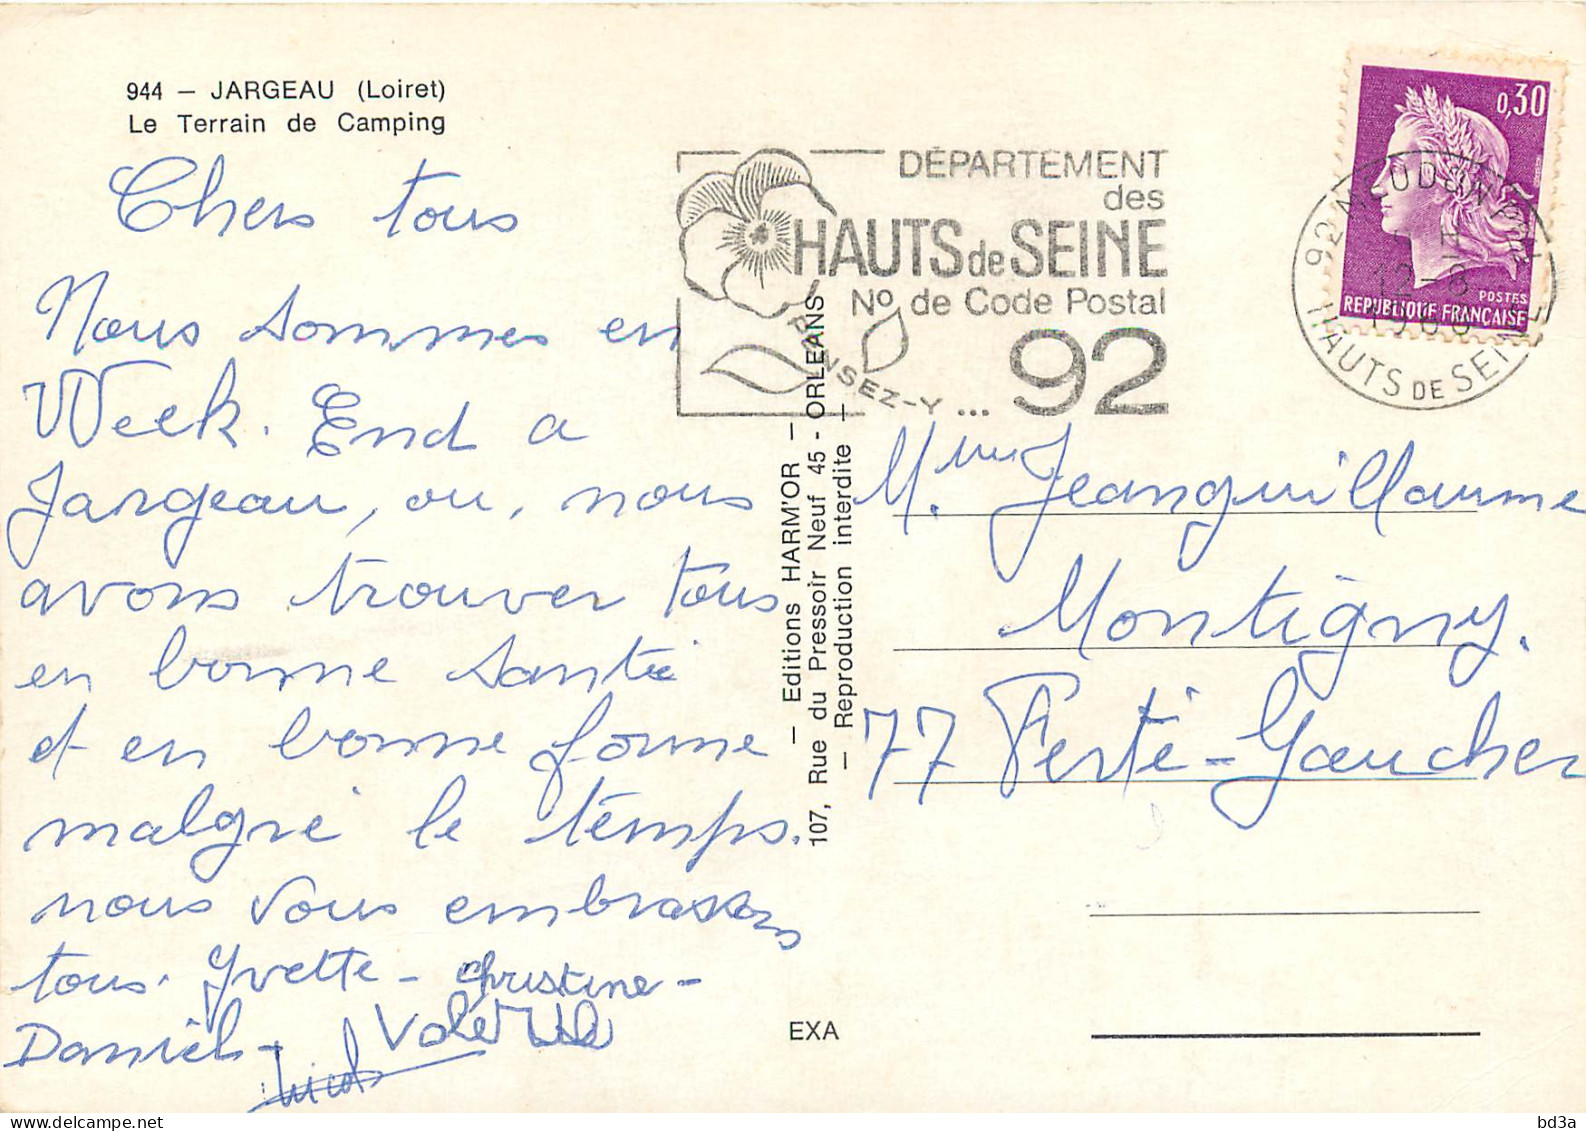 944 — JARGEAU (Loiret)
Le Terrain de Camping
Chers tous
Nous sommes en
Week. End a
Jargeau, ou, nous
avons trouver tous
en bonne santé
et en bonne forme
malgré le temps.
nous vous embrassons
tous. Yvette - Christine -
Daniel -
— Editions HARM'OR —
107, Rue du Pressoir Neuf 45 - ORLEANS
— Reproduction interdite —
EXA
DÉPARTEMENT
des
HAUTS de SEINE
No de Code Postal
PENSEZ-Y ... 92
0,30
POSTES
REPUBLIQUE FRANÇAISE
92 MEUDON
HAUTS DE SEINE
Mme Jeanguillaume
Montigny.
77 Ferté-Gaucher
bd3a